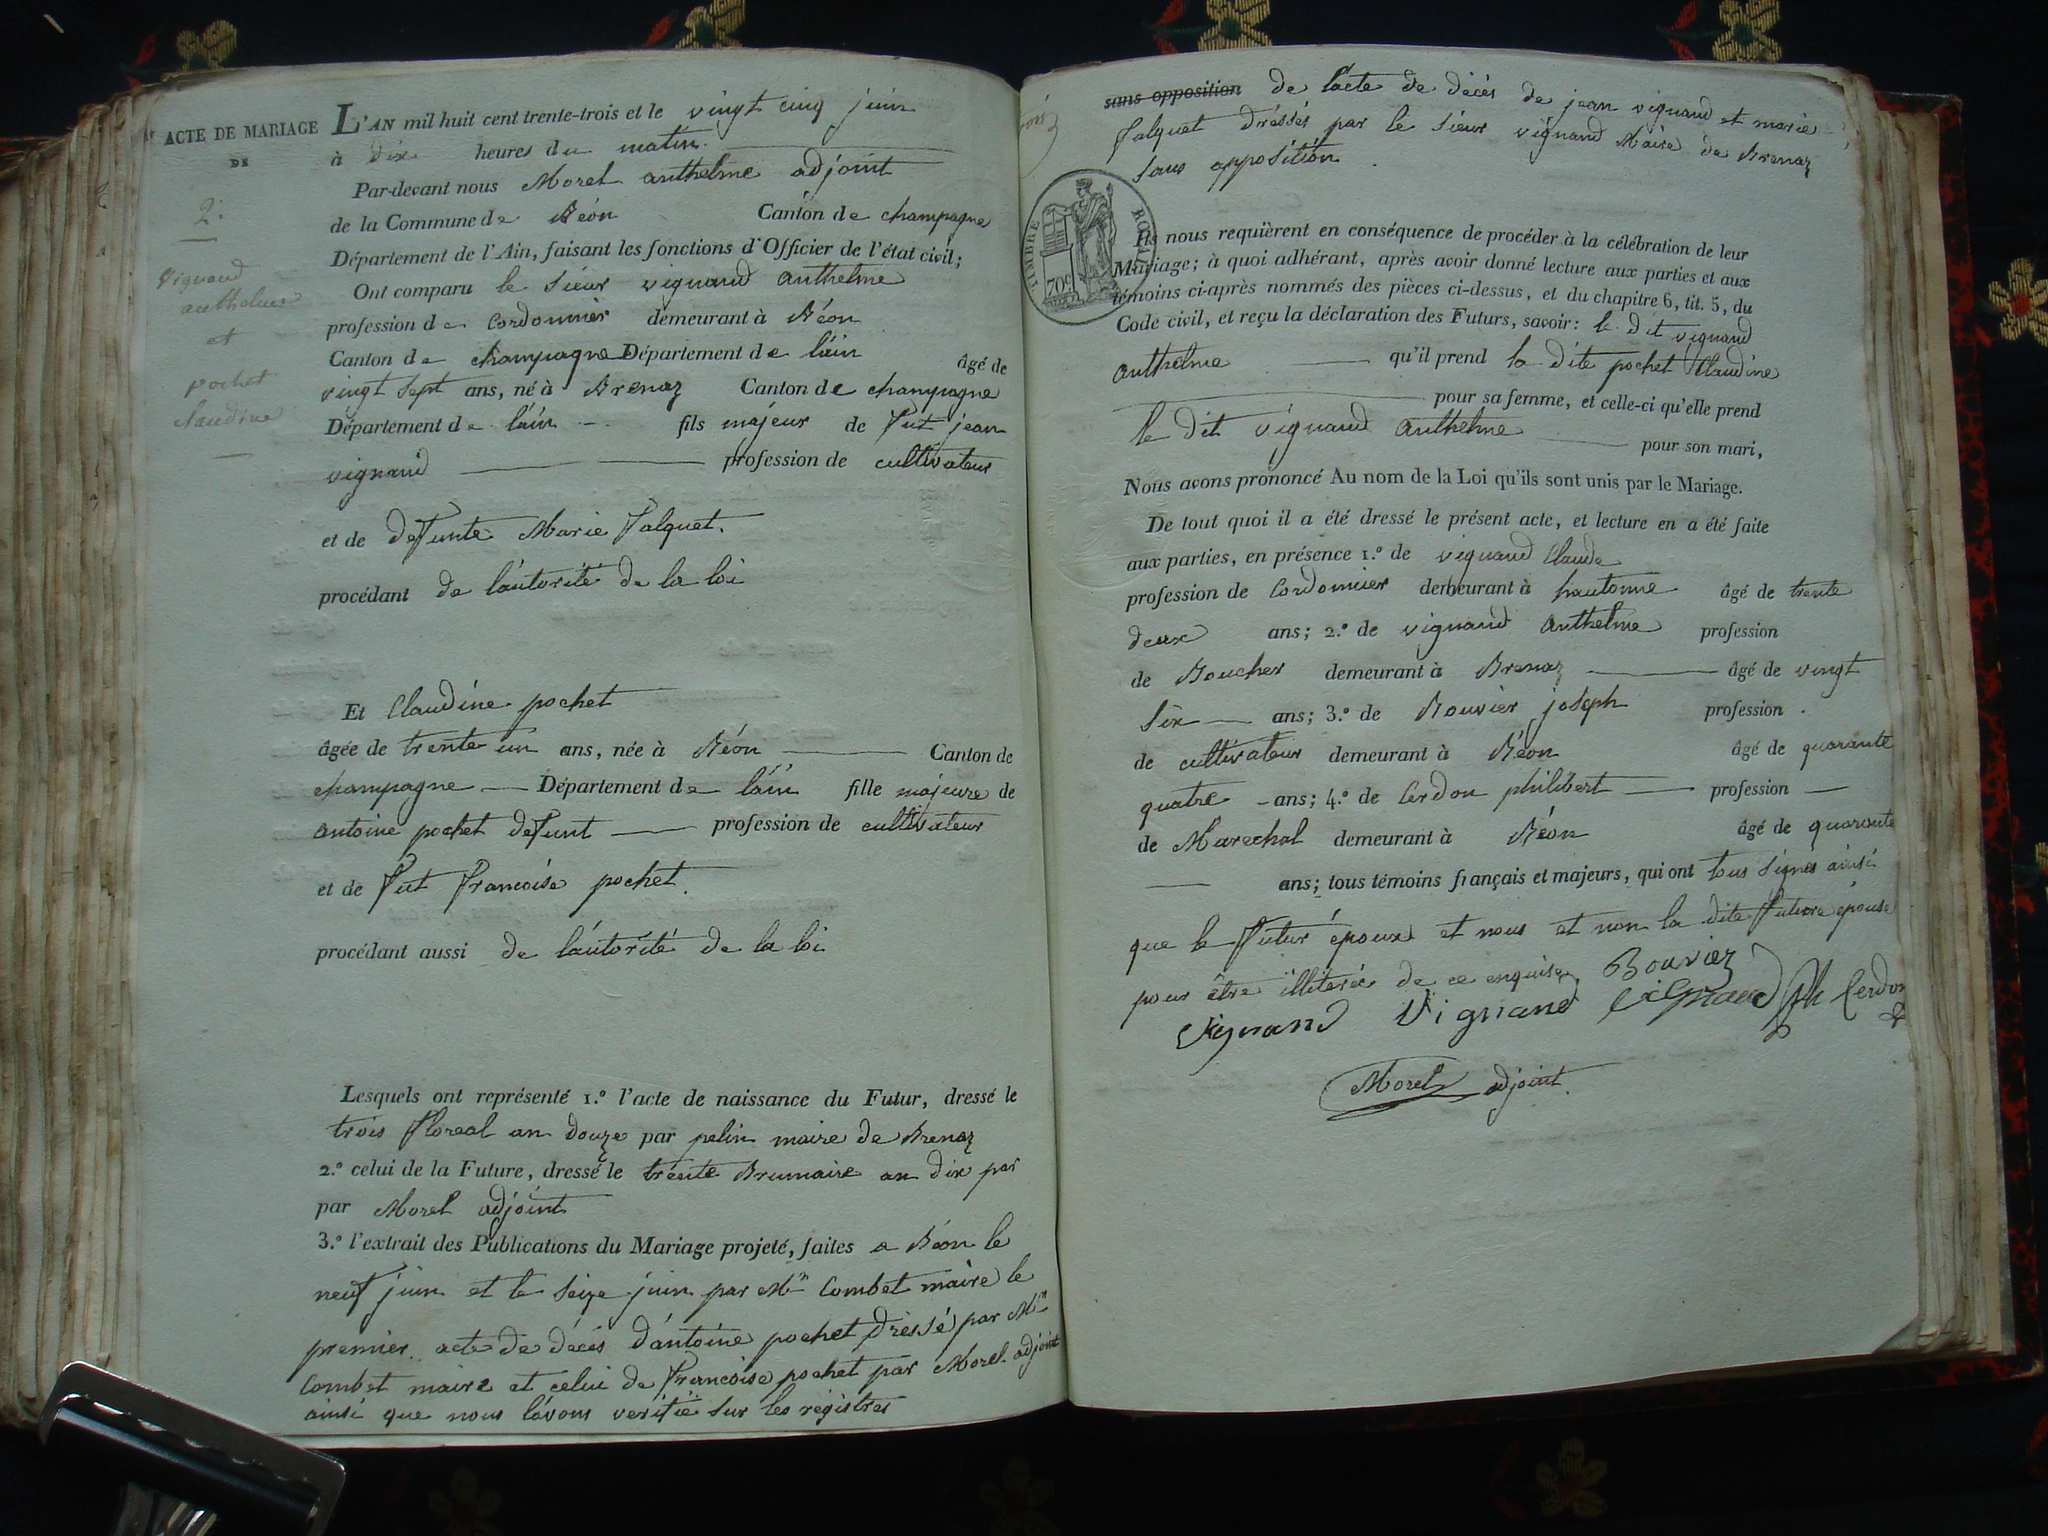 ACTE DE MARIAGE
DE
2.
Vignand
anthelme
et
pochet
claudine
L'AN mil huit cent trente-trois et le vingt cinq juin
à dix heures du matin.
Par-devant nous Morel anthelme adjoint
de la Commune de Béon Canton de champagne
Département de l'Ain, faisant les fonctions d'Officier de l'état civil;
Ont comparu le sieur vignand Anthelme
profession de Cordonnier demeurant à Béon
Canton de champagne Département de láin âgé de
vingt sept ans, né à Brenaz Canton de champagne
Département de láin fils majeur de fut jean
vignand profession de cultivateur
et de defunte Marie falquet.
procédant de láutorité de la loi
Et Claudine pochet
âgée de trente un ans, née à Béon Canton de
champagne Département de láin fille majeure de
antoine pochet defunt profession de cultivateur
et de fut francoise pochet.
procédant aussi de láutorité de la loi
Lesquels ont représenté 1.º l'acte de naissance du Futur, dressé le
trois floreal an douze par pelin maire de Brenaz
2.º celui de la Future, dressé le trente Brumaire an dix par
par Morel adjoint
3.º l'extrait des Publications du Mariage projeté, faites a Béon le
neuf juin et le seize juin par Mr Combet maire le
premier acte de décés dántoine pochet dressé par Mr
Combet maire et celui de francoise pochet par Morel adjoint
ainsi que nous lávons verifié sur les régistres
sans opposition de lácte de décés de jean vignand et marie
falquet dréssés par le sieur vignand Maire de Brenaz
sans opposition.
TIMBRE ROYAL
70c
Ils nous requièrent en conséquence de procéder à la célébration de leur
Mariage; à quoi adhérant, après avoir donné lecture aux parties et aux
témoins ci-après nommés des pièces ci-dessus, et du chapitre 6, tit. 5, du
Code civil, et reçu la déclaration des Futurs, savoir: le dit vignand
anthelme qu'il prend la dite pochet Claudine
pour sa femme, et celle-ci qu'elle prend
le dit vignand anthelme pour son mari,
Nous avons prononcé Au nom de la Loi qu'ils sont unis par le Mariage.
De tout quoi il a été dressé le présent acte, et lecture en a été faite
aux parties, en présence 1.º de vignand Claude
profession de Cordonnier demeurant à hautonne âgé de trente
deux ans; 2.º de vignand anthelme profession
de Boucher demeurant à Brenaz âgé de vingt
six ans; 3.º de Bouvier joseph profession
de cultivateur demeurant à Béon âgé de quarante
quatre ans; 4.º de Cerdon philibert profession
de Marechal demeurant à Béon âgé de quarante
ans; tous témoins français et majeurs, qui ont tous signés ainsi
que le futur époux et nous et non la dite future épouse
pour être illiterée de ce enquise. Bouvier
Vignand Vignand Vignand Ph Cerdon
Morel adjoint.